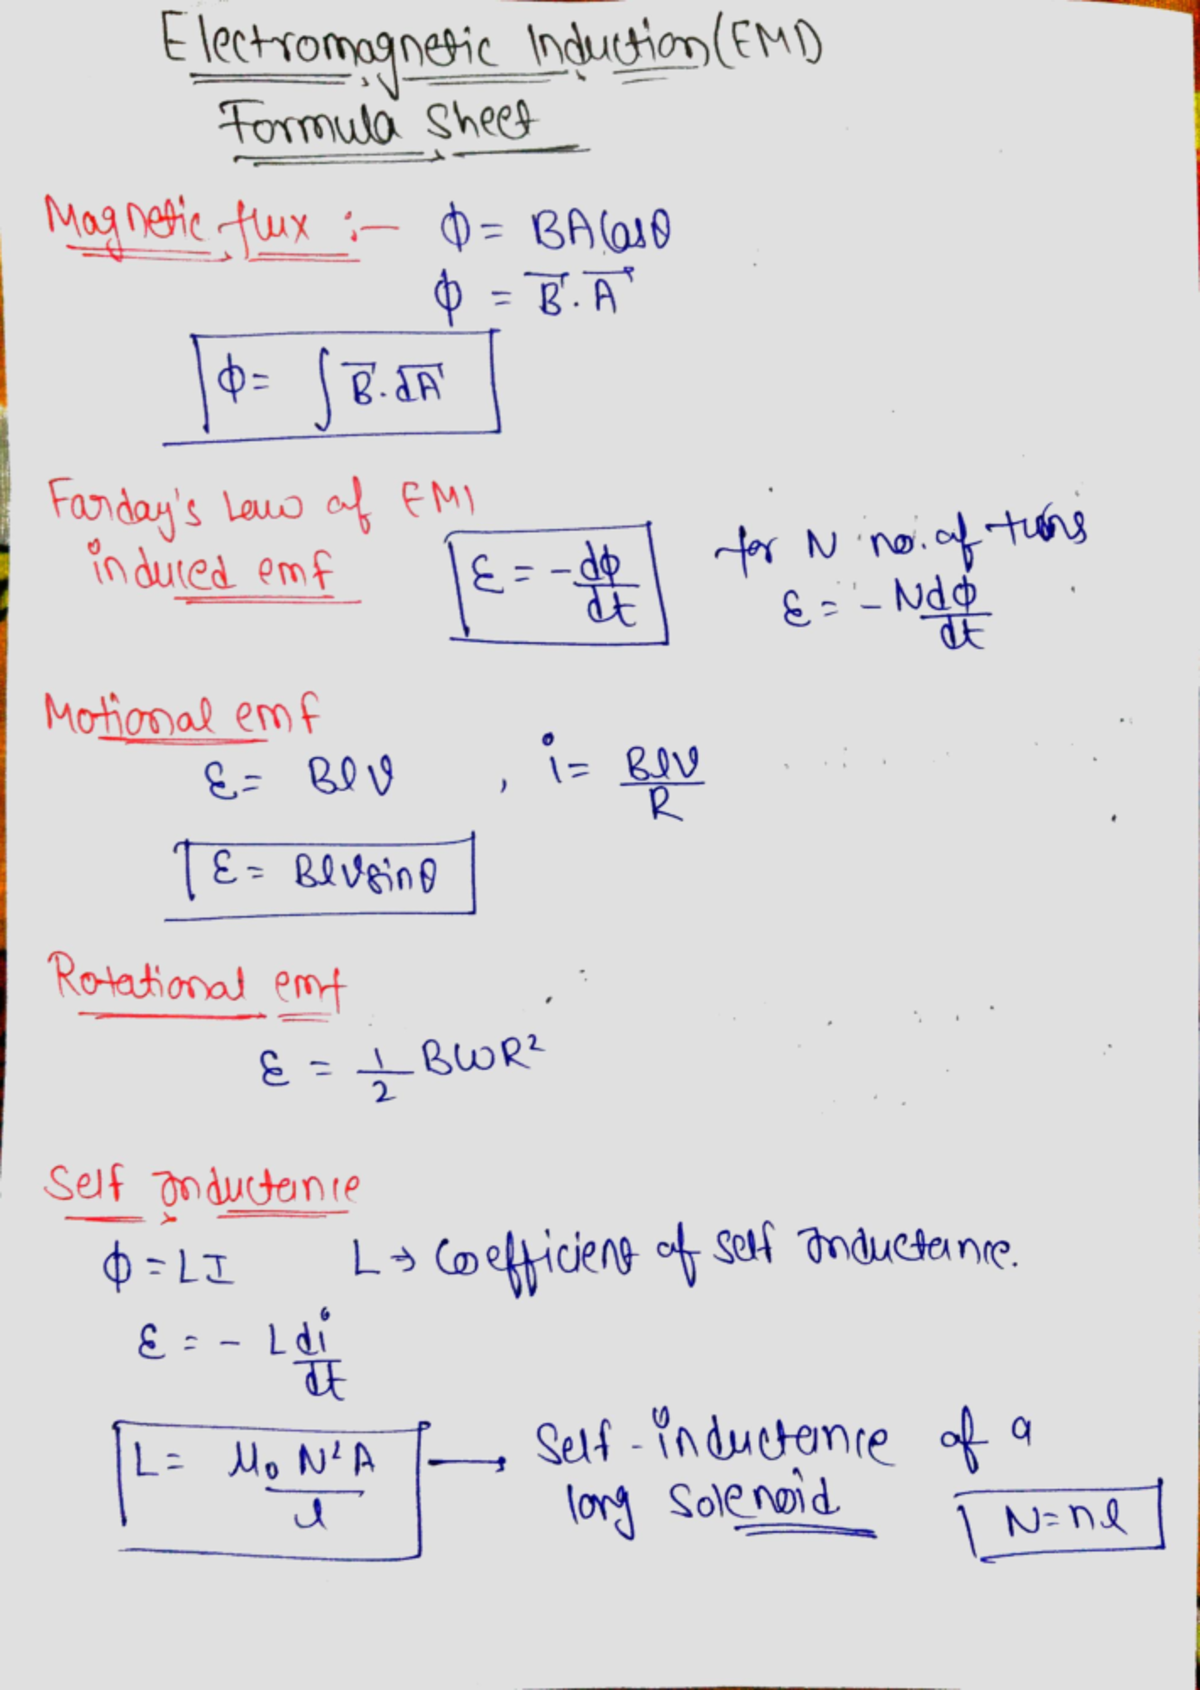 Electromagnetic Induction (EMI)
Formula Sheet
Magnetic flux :- ϕ = BA Cosθ
ϕ = B⃗ . A⃗
ϕ = ∫ B⃗ . dA⃗
Farday's Law of EMI
induced emf ε = - dϕ/dt for N no. of turns
ε = - N dϕ/dt
Motional emf
ε = Blv , i = Blv/R
ε = Blv sinθ
Rotational emf
ε = 1/2 BωR²
Self Inductance
ϕ = LI L → Coefficient of self Inductance.
ε = - L di/dt
L = μ₀ N² A / l → Self-inductance of a
long Solenoid N = nl